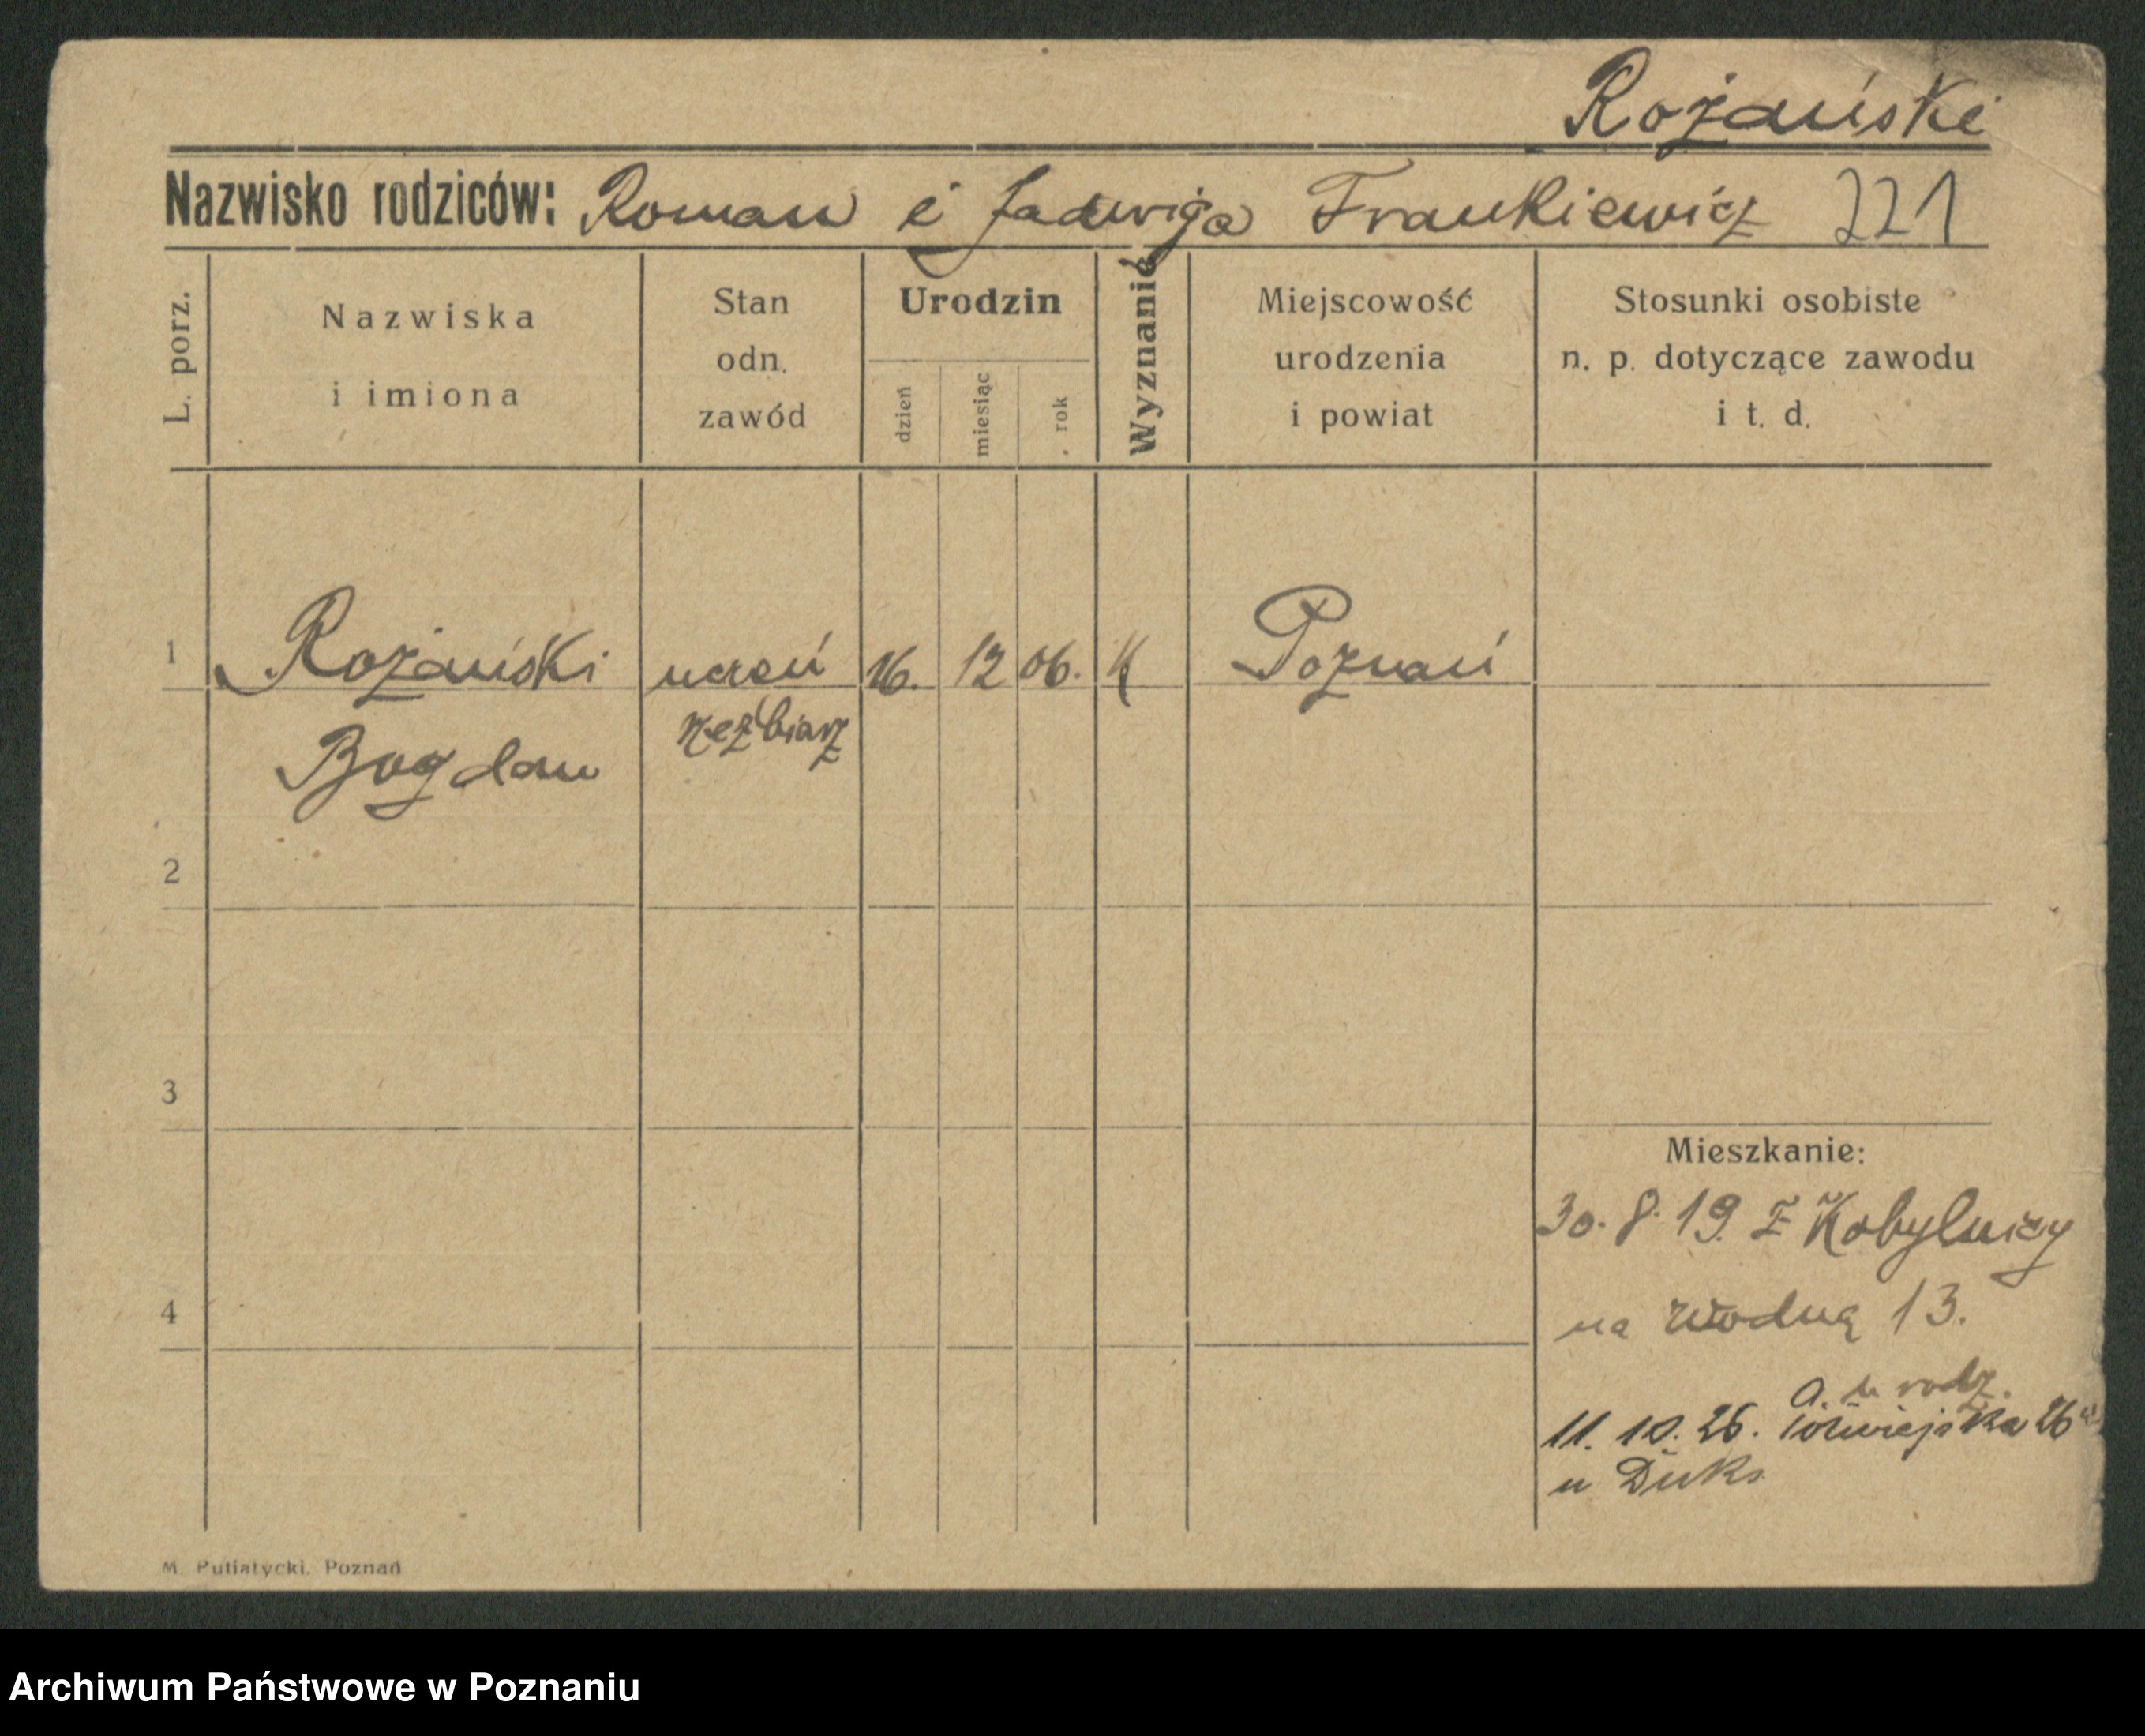 Rożański
Nazwisko rodziców: Roman i Jadwiga Frankiewicz 221
L. porz.
Nazwiska
i imiona
Stan
odn.
zawód
Urodzin
dzień
miesiąc
rok
Wyznanie
Miejscowość
urodzenia
i powiat
Stosunki osobiste
n. p. dotyczące zawodu
i t. d.
1 Rożański uczeń 16. 12 06. K Poznań
Bogdan rzeźbiarz
2
3
4
Mieszkanie:
30. 8. 19. z Kobylnicy
na Wodną 13.
a. u rodz.
11. 10. 26. Półwiejska 26
u Duks
M. Putiatycki. Poznań
Archiwum Państwowe w Poznaniu